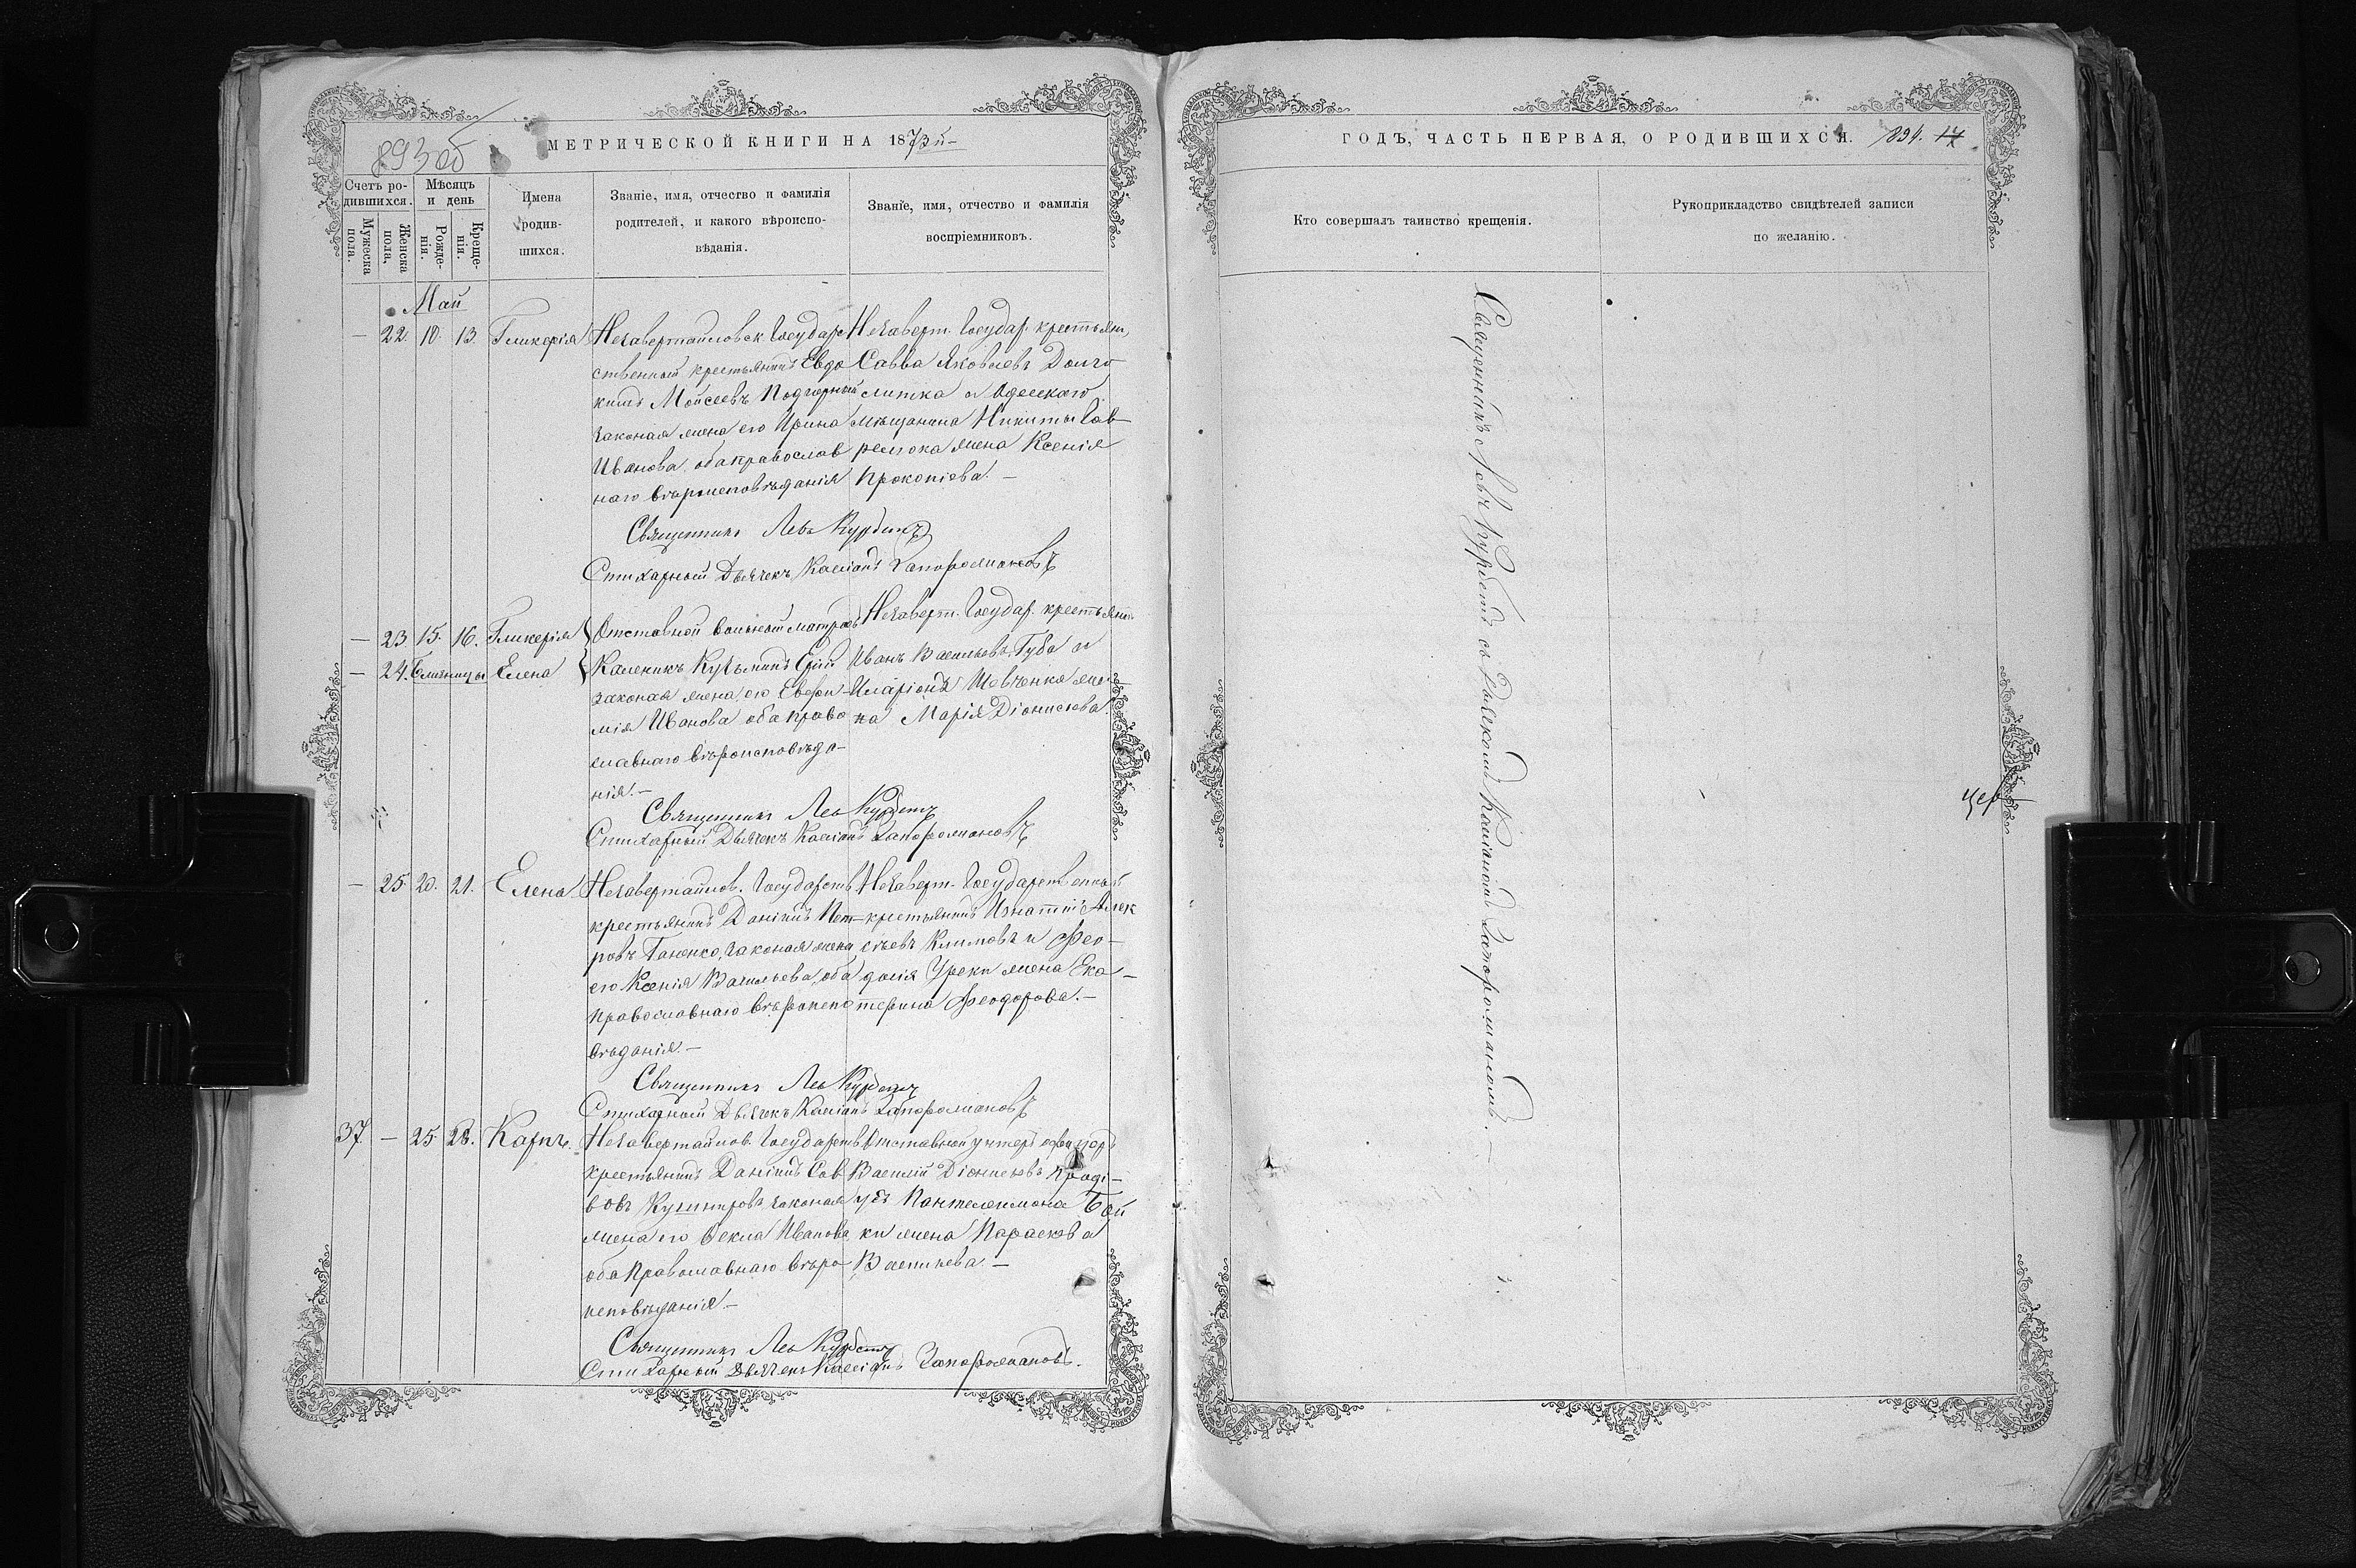 893 об
МЕТРИЧЕСКОЙ КНИГИ НА 1873й-
Счетъ ро-
дившихся.
Мужеска
пола.
Женска
пола,
Мѣсяцъ
и день
Рожде-
нія.
Креще-
нія.
Имена
родив-
шихся.
Званіе, имя, отчество и фамилія
родителей, и какого вѣроиспо-
вѣданія.
Званіе, имя, отчество и фамилія
воспріемниковъ.
Май
— 22. 10. 13. Гликерія
Незавертайловск. Государ
ственный крестьянинъ Евдо
кимъ Мойсеевъ Подгорный
законая жена его Ирина
Иванова, оба православ
наго вѣроисповѣданія
Незаверт. Государ. крестьян,
Савва Яковлевъ Долго
Одесскаго
мѣщанина Никиты Сав
жена Ксенія
Прокопіева. —
Священникъ Левъ Курбетъ
Стихарный Дьячекъ Касіанъ Запорожановъ
— 23. 15. 16. Гликерія
— 24. Близницы Елена
Отставной вольный матросъ
Каленикъ Кузьминъ
законая жена его Евфи-
мія Иванова оба право
славнаго вѣроисповѣда-
нія. —
Незаверт. Государ. крестьяне
Иванъ Васильевъ Губа и
Иларіона Шевченка же-
на Марія Діонисіева.
Священникъ Левъ Курбетъ
Стихарный Дьячекъ Касіанъ Запорожановъ
— 25. 20. 21. Елена
Незавертайлов. Государств
крестьянинъ Даніилъ Пет-
ровъ Ганенко, законая жена
его Ксенія Васильева, оба
православнаго вѣроиспо
вѣданія. —
Незаверт. Государственный
крестьянинъ Игнатій Алек
сѣевъ Климовъ и Фео-
досія Уреки жена Ека-
терина Феодорова. —
Священникъ Левъ Курбетъ
Стихарный Дьячекъ Касіанъ Запорожановъ
37. — 25. 28. Карпъ.
Незавертайлов. Государств
крестьянинъ Даніилъ Сав
вовъ Кушниръ законая
жена его Ѳекла Иванова
оба православнаго вѣро
исповѣданія. —
Отставной унтеръ офицеръ
Василій Діонисіевъ
Пантелеимона Бой
ки жена Параскева
Васильева. —
Священникъ Левъ Курбетъ
Стихарный Дьячекъ Касіанъ Запорожановъ.
ГОДЪ, ЧАСТЬ ПЕРВАЯ, О РОДИВШИХСЯ. 894. 17
Кто совершалъ таинство крещенія.
Рукоприкладство свидѣтелей записи
по желанію.
Священникъ Левъ Курбетъ съ Дьячкомъ Касіаномъ Запорожановымъ. —